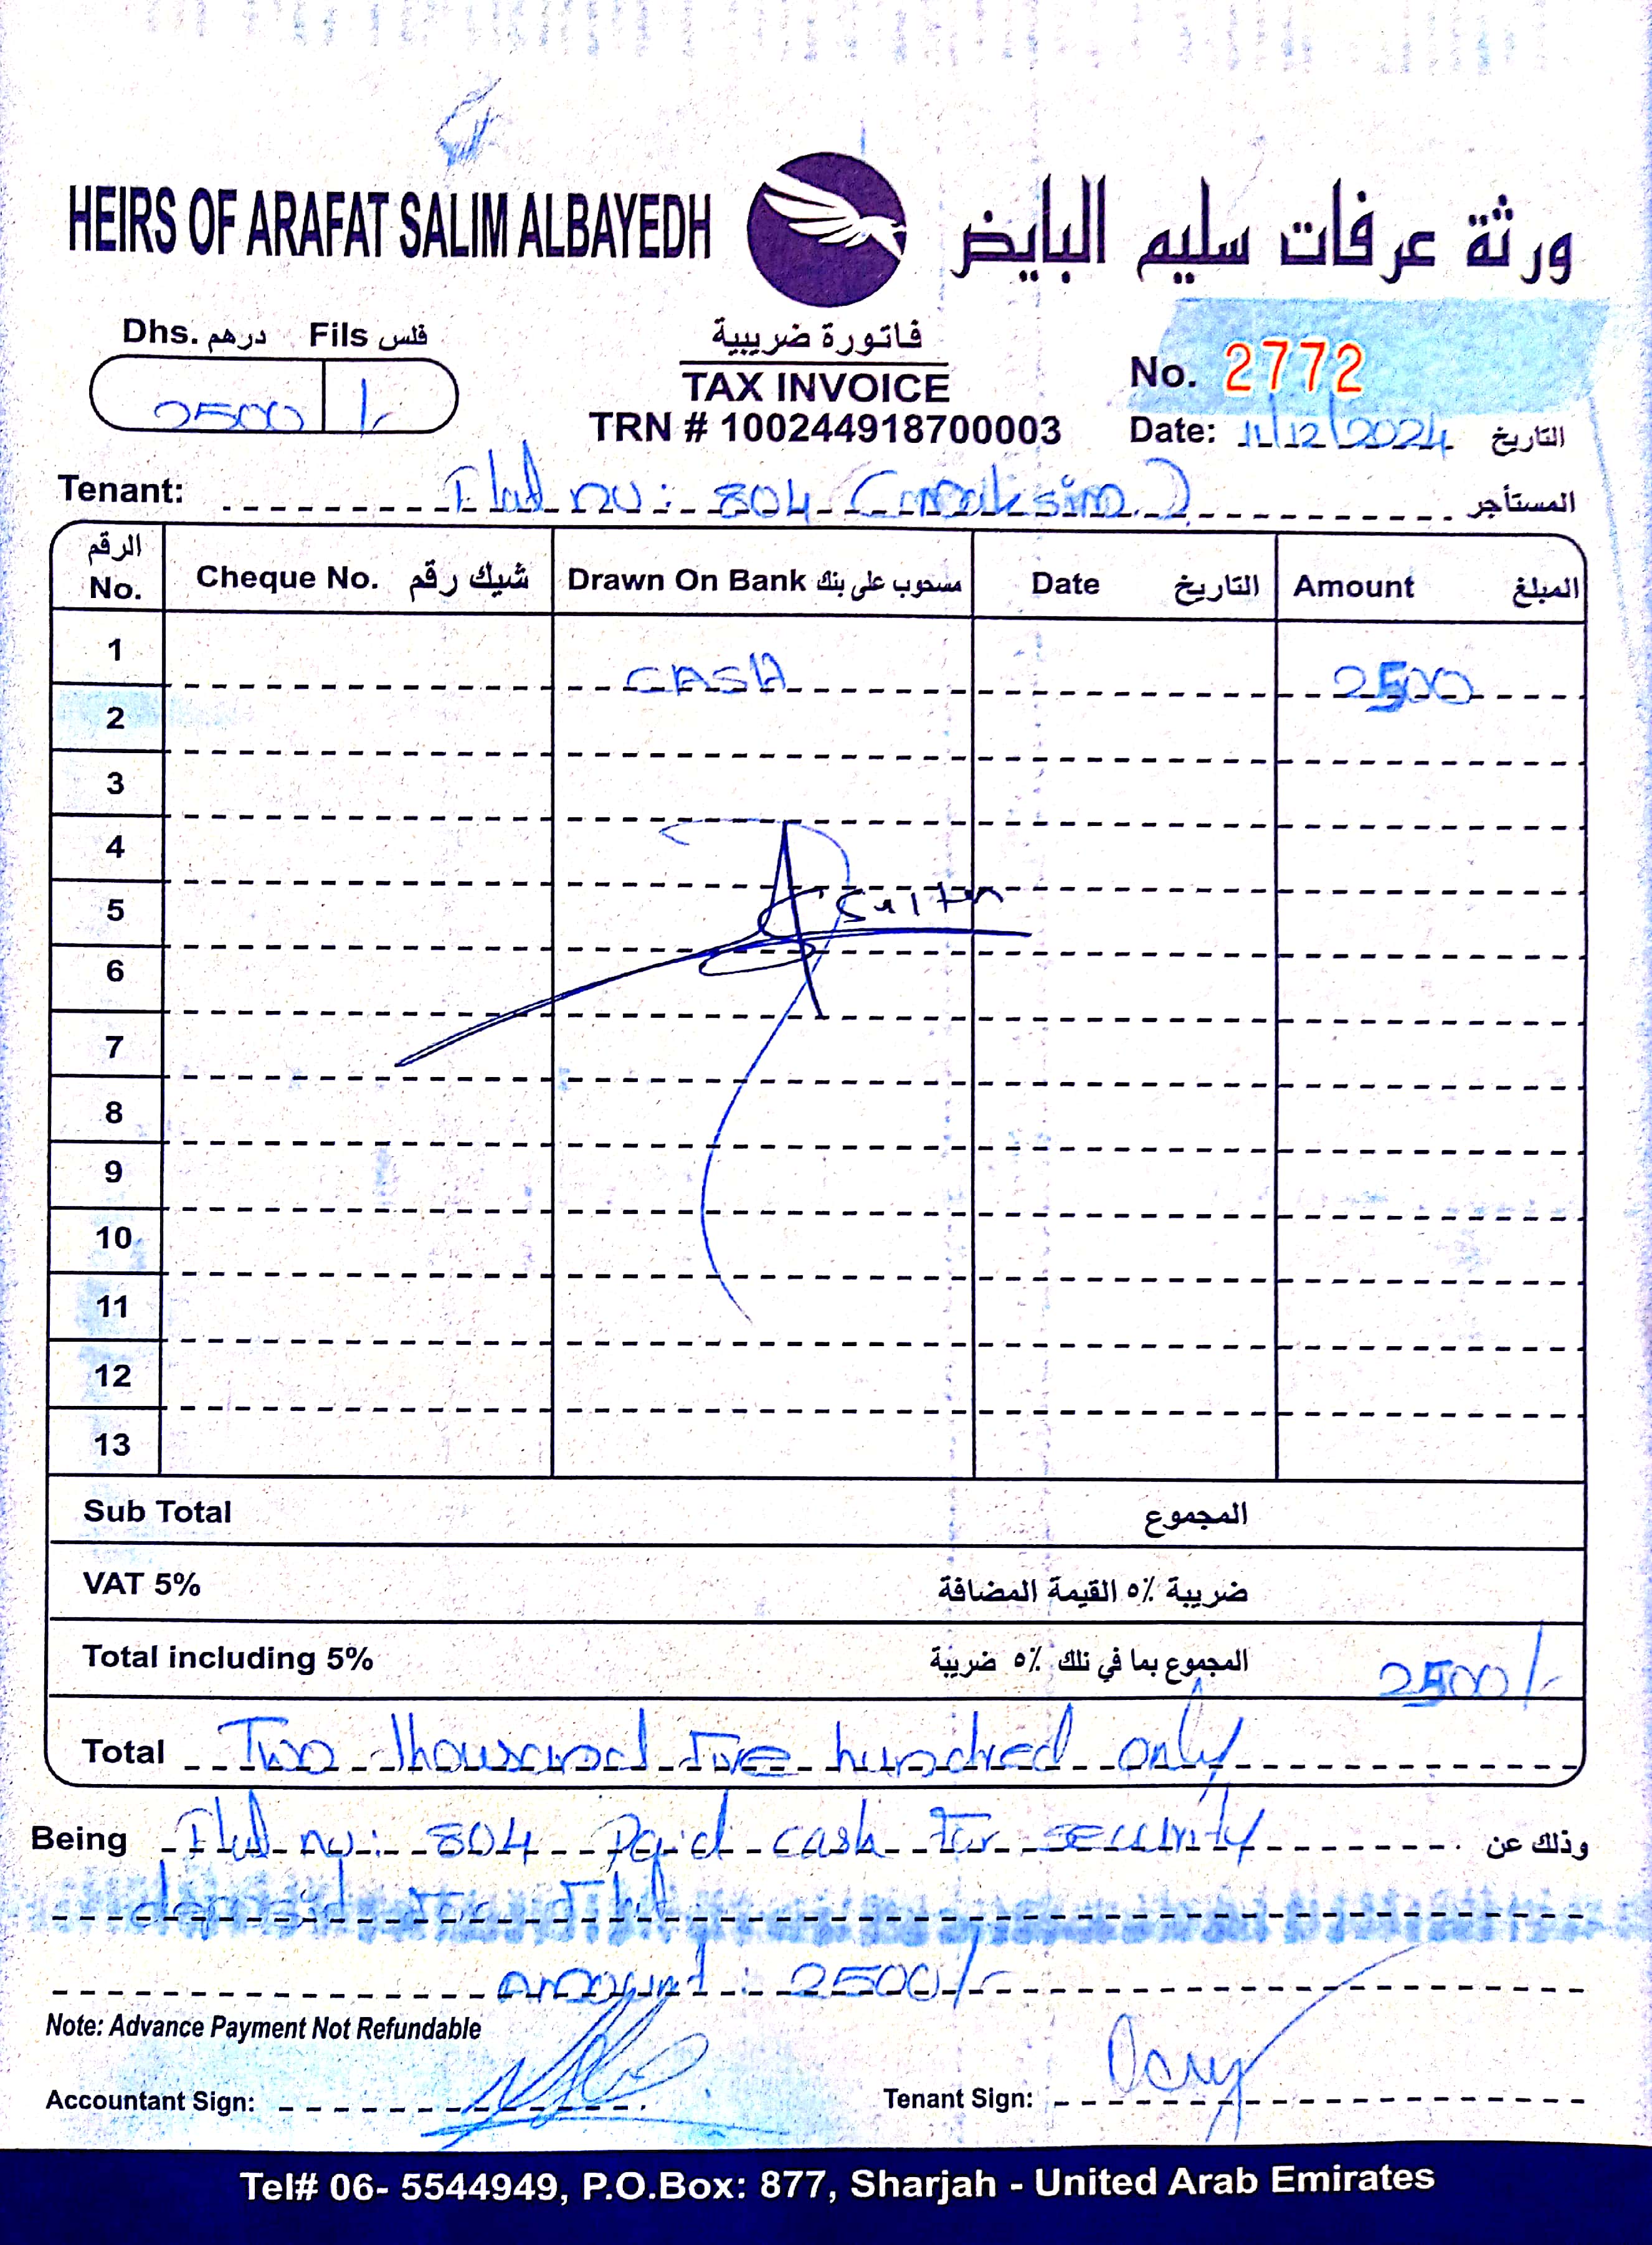 HEIRS OF ARAFAT SALIM ALBAYEDH ورثة عرفات سليم البايض
Dhs. درهم Fils فلس
2500 /-
فاتورة ضريبية
TAX INVOICE
TRN # 100244918700003
No. 2772
Date: 11/12/2024 التاريخ
Tenant: Flat no: 804 (maksim) المستأجر
الرقم No. Cheque No. شيك رقم Drawn On Bank مسحوب على بنك Date التاريخ Amount المبلغ
1 CASH 2500
2
3
4
5 Sultan
6
7
8
9
10
11
12
13
Sub Total المجموع
VAT 5% ضريبة ٥٪ القيمة المضافة
Total including 5% المجموع بما في ذلك ٥٪ ضريبة 2500/-
Total Two thousand five hundred only
Being Flat no: 804 Paid cash for security وذلك عن
deposit for Flat
amount: 2500/-
Note: Advance Payment Not Refundable
Accountant Sign: Tenant Sign:
Tel# 06- 5544949, P.O.Box: 877, Sharjah - United Arab Emirates